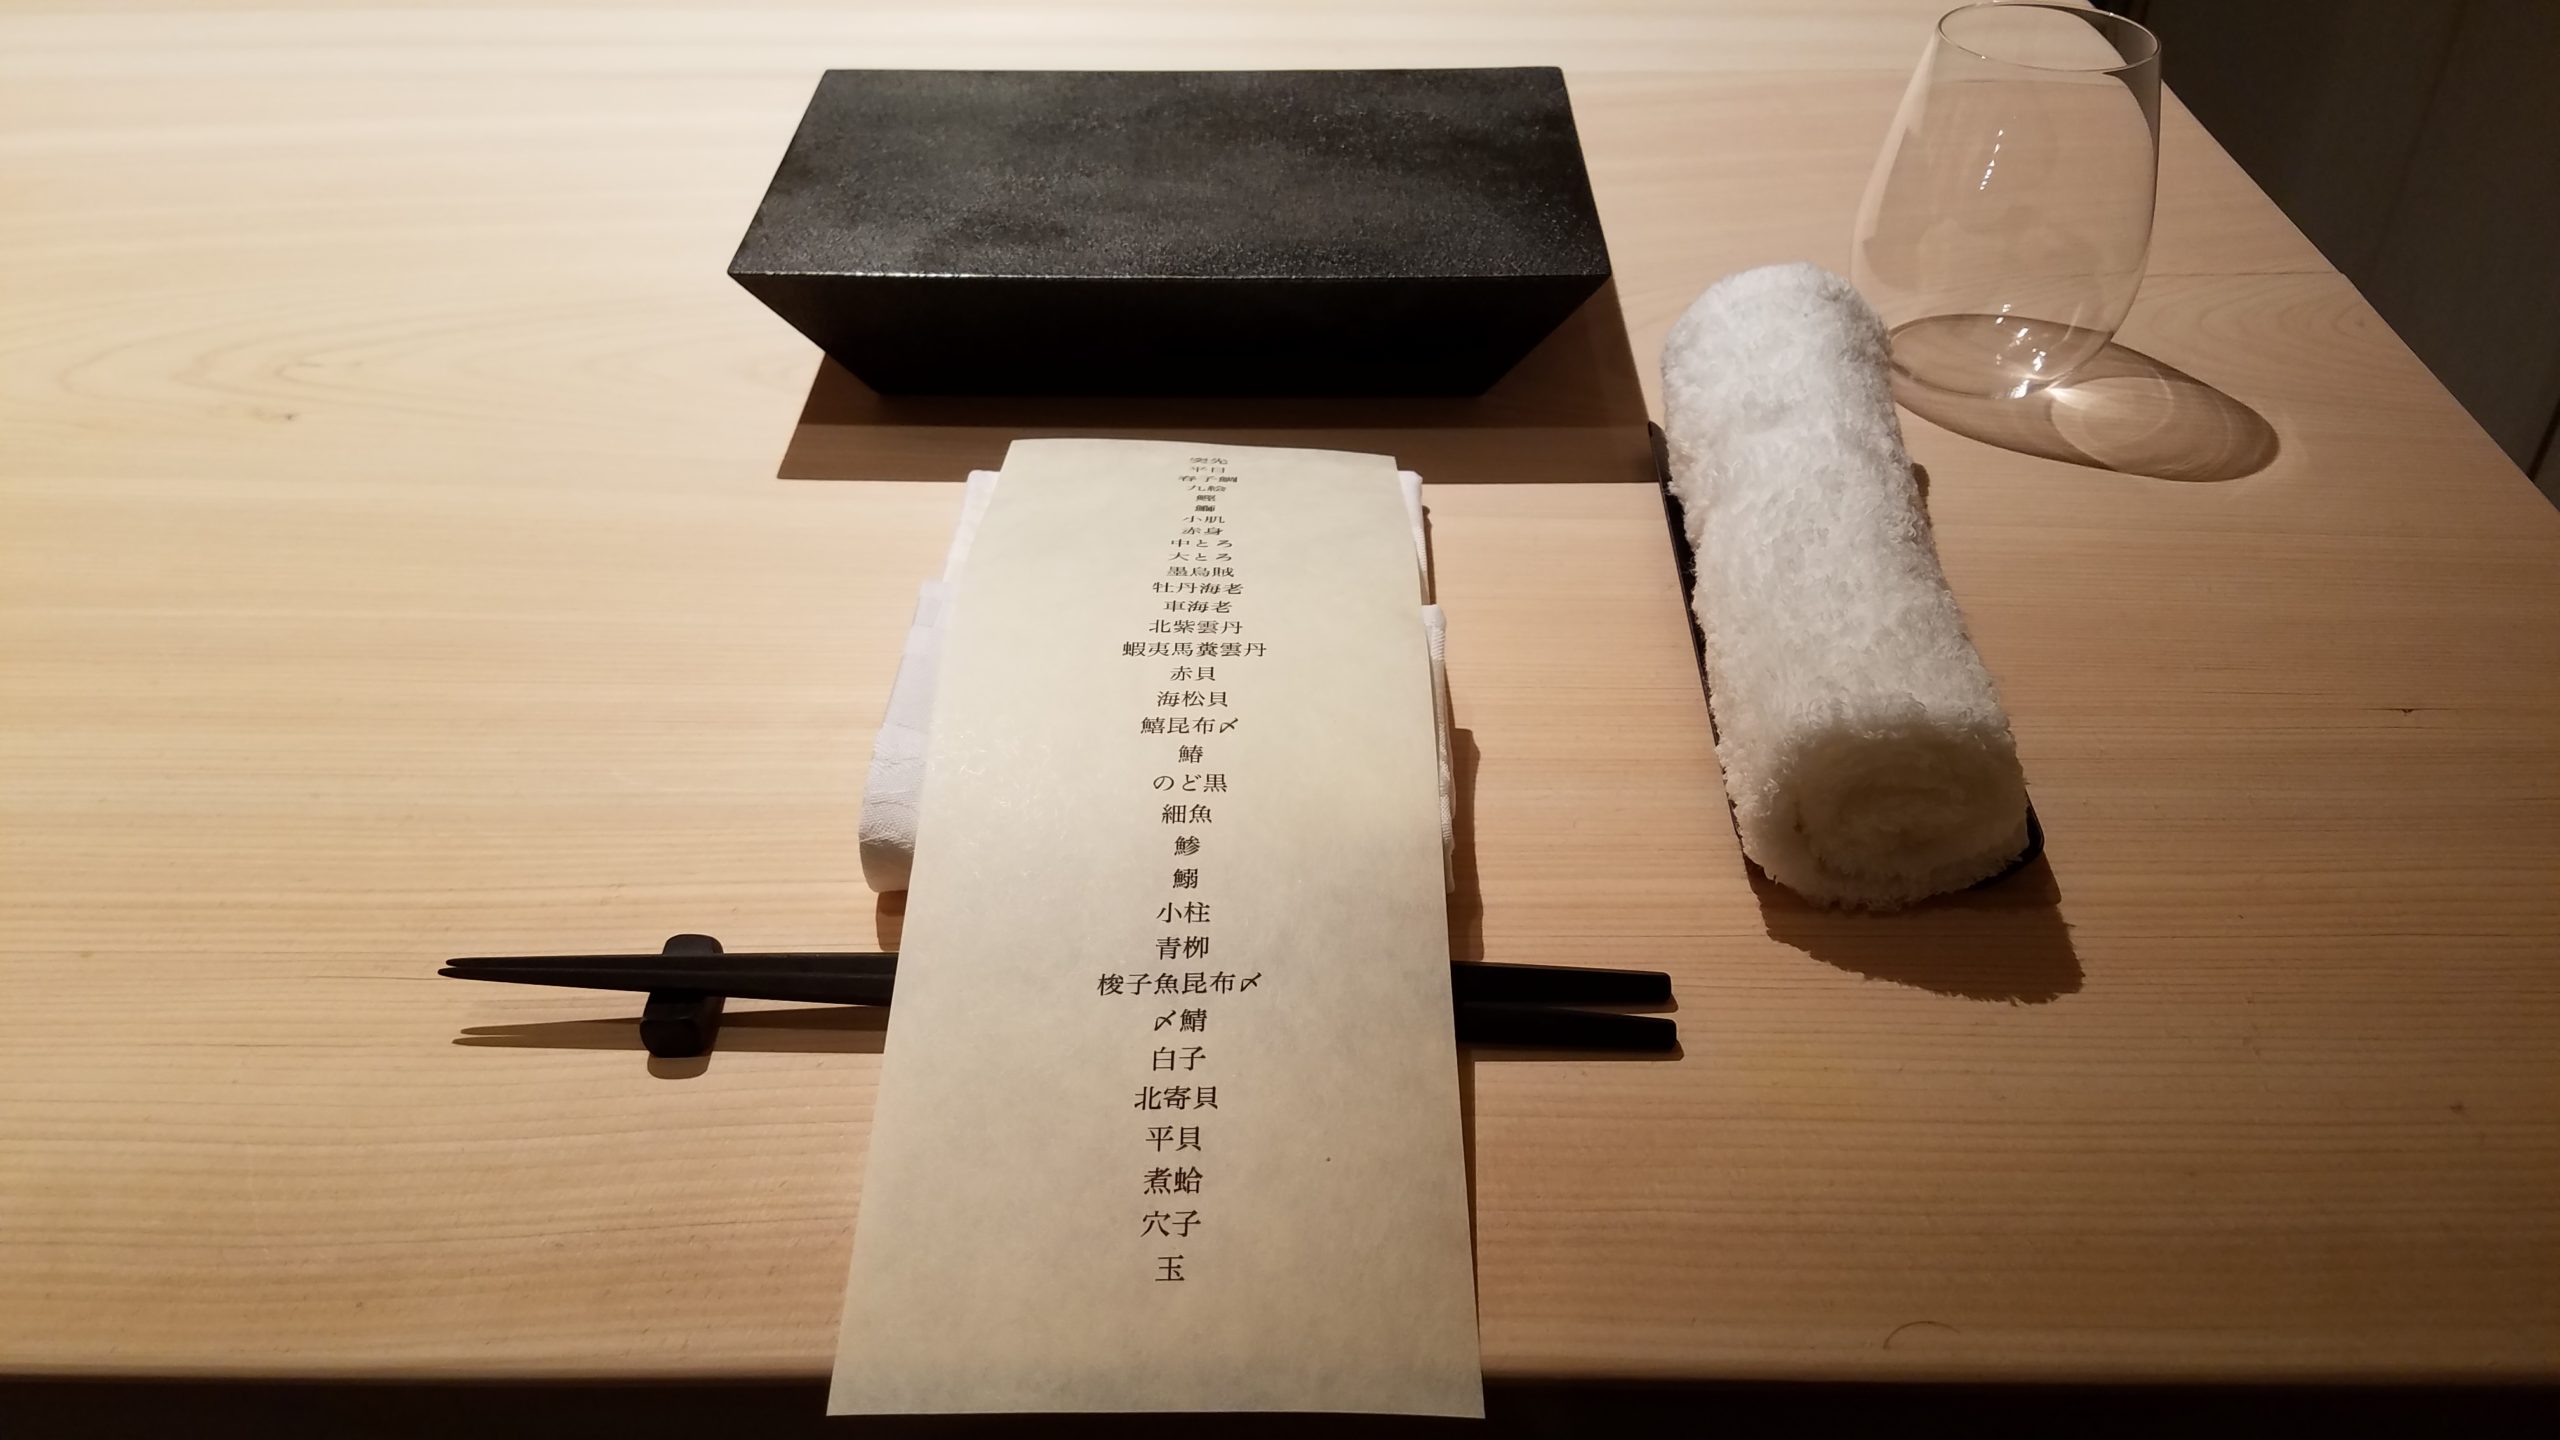 突先
平目
春子鯛
九絵
鰹
鰤
小肌
赤身
中とろ
大とろ
墨烏賊
牡丹海老
車海老
北紫雲丹
蝦夷馬糞雲丹
赤貝
海松貝
鱚昆布〆
鰆
のど黒
細魚
鯵
鰯
小柱
青栁
梭子魚昆布〆
〆鯖
白子
北寄貝
平貝
煮蛤
穴子
玉